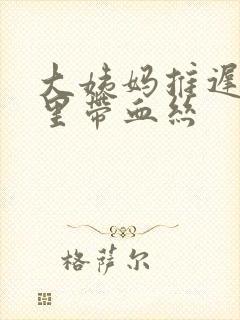 大姨妈推迟
里带血丝
格萨尔